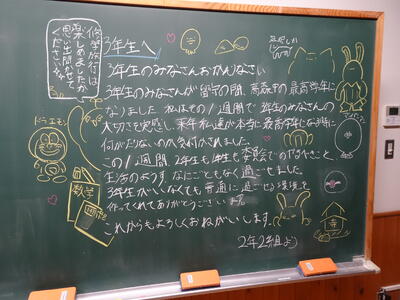 修学旅行は
楽しめましたか
思い出聞かせて
ください
3年生へ
3年生のみなさんおかえりなさい
3年生のみなさんが留守の間、
最高学年に
なりました 私たちの1週間で3年生のみなさんの
大切さを実感し、来年私達が本当に最高学年になる時に
何がたりないのか気付かされました。
この1週間、2年生も1年生も
生活のようすなにごともなく過ごしました。
3年生がいなくても普通に過ごせる環境を
作ってくれてありがとうございます。
これからもよろしくおねがいします。
2年2組より
ドラエモン
数学
寺